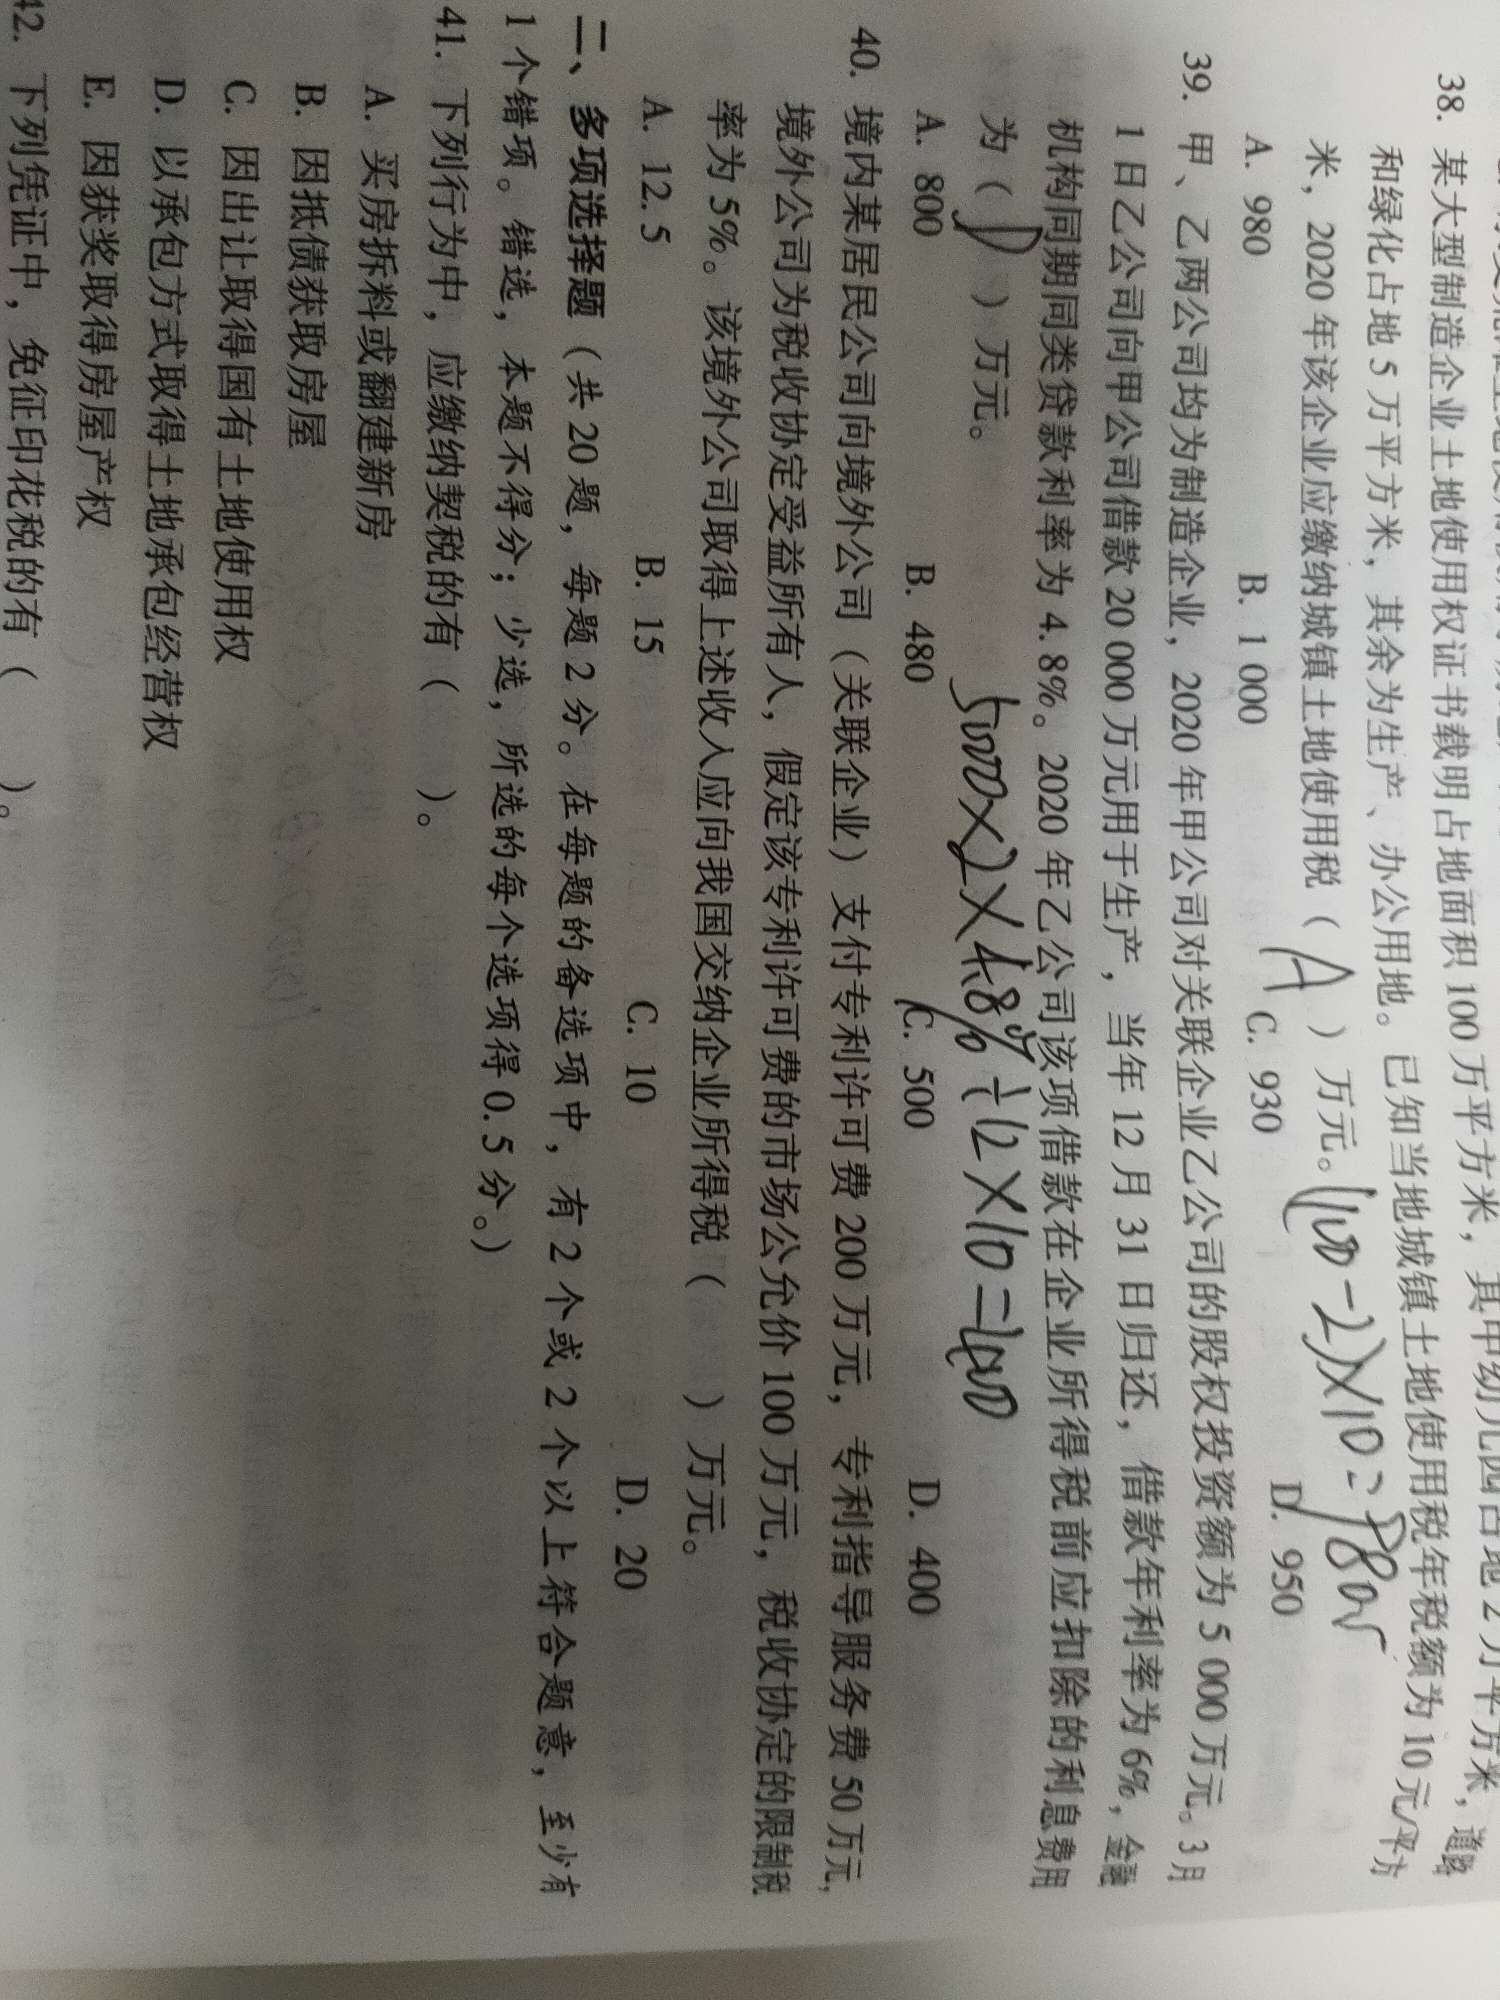 38. 某大型制造企业土地使用权证书载明占地面积 100 万平方米，其中幼儿园占地 2 万平方米，道路
和绿化占地 5 万平方米，其余为生产、办公用地。已知当地城镇土地使用税年税额为 10 元/平方
米，2020 年该企业应缴纳城镇土地使用税（ A ）万元。(100-2)×10=980
A. 980 B. 1 000 C. 930 D. 950
39. 甲、乙两公司均为制造企业，2020 年甲公司对关联企业乙公司的股权投资额为 5 000 万元。3 月
1 日乙公司向甲公司借款 20 000 万元用于生产，当年 12 月 31 日归还，借款年利率为 6%，金融
机构同期同类贷款利率为 4.8%。2020 年乙公司该项借款在企业所得税前应扣除的利息费用
为（ D ）万元。
5000×2×4.8%÷12×10=400
A. 800 B. 480 C. 500 D. 400
40. 境内某居民公司向境外公司（关联企业）支付专利许可费 200 万元，专利指导服务费 50 万元，
境外公司为税收协定受益所有人，假定该专利许可费的市场公允价 100 万元，税收协定的限制税
率为 5%。该境外公司取得上述收入应向我国交纳企业所得税（ ）万元。
A. 12.5 B. 15 C. 10 D. 20
二、多项选择题（共 20 题，每题 2 分。在每题的备选项中，有 2 个或 2 个以上符合题意，至少有
1 个错项。错选，本题不得分；少选，所选的每个选项得 0.5 分。）
41. 下列行为中，应缴纳契税的有（ ）。
A. 买房拆料或翻建新房
B. 因抵债获取房屋
C. 因出让取得国有土地使用权
D. 以承包方式取得土地承包经营权
E. 因获奖取得房屋产权
42. 下列凭证中，免征印花税的有（ ）。